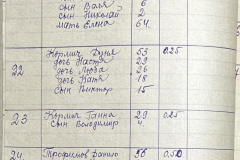 сын Валя 6
сын Николай 2
мать Елена 64
22 Дуня 53 0.25
дочь Настя 29
дочь Люба 26
дочь Катя 18
сын Виктор 15
23 Ганна 29 0.25
сын Володимир 4
24 Трофимов Данило 56 0.50